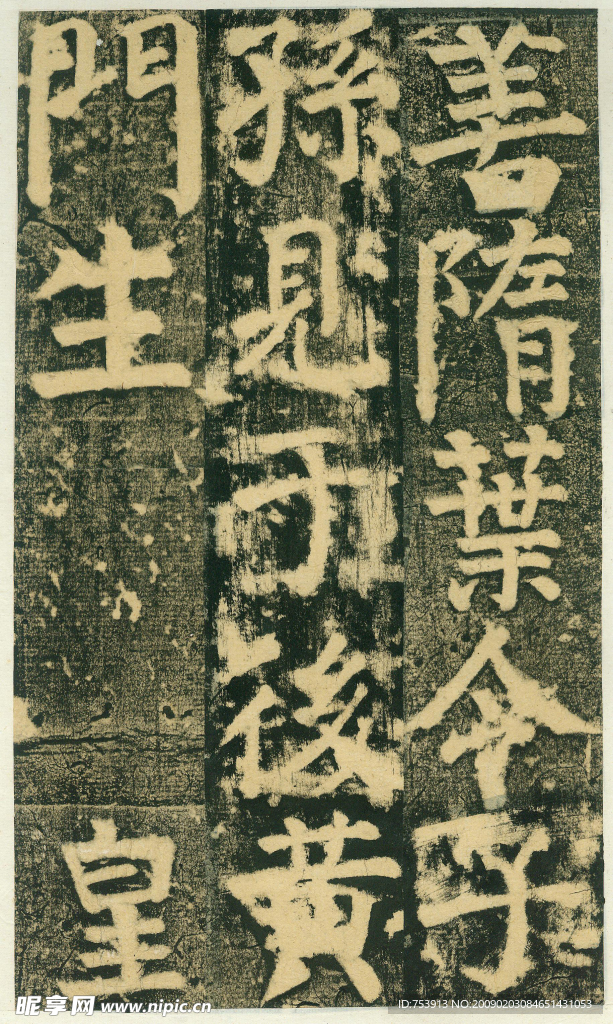 善隋葉令子
孫見于後黃
門生 皇
昵享网 www.nipic.cn
ID:753913 NO:20090203084651431053